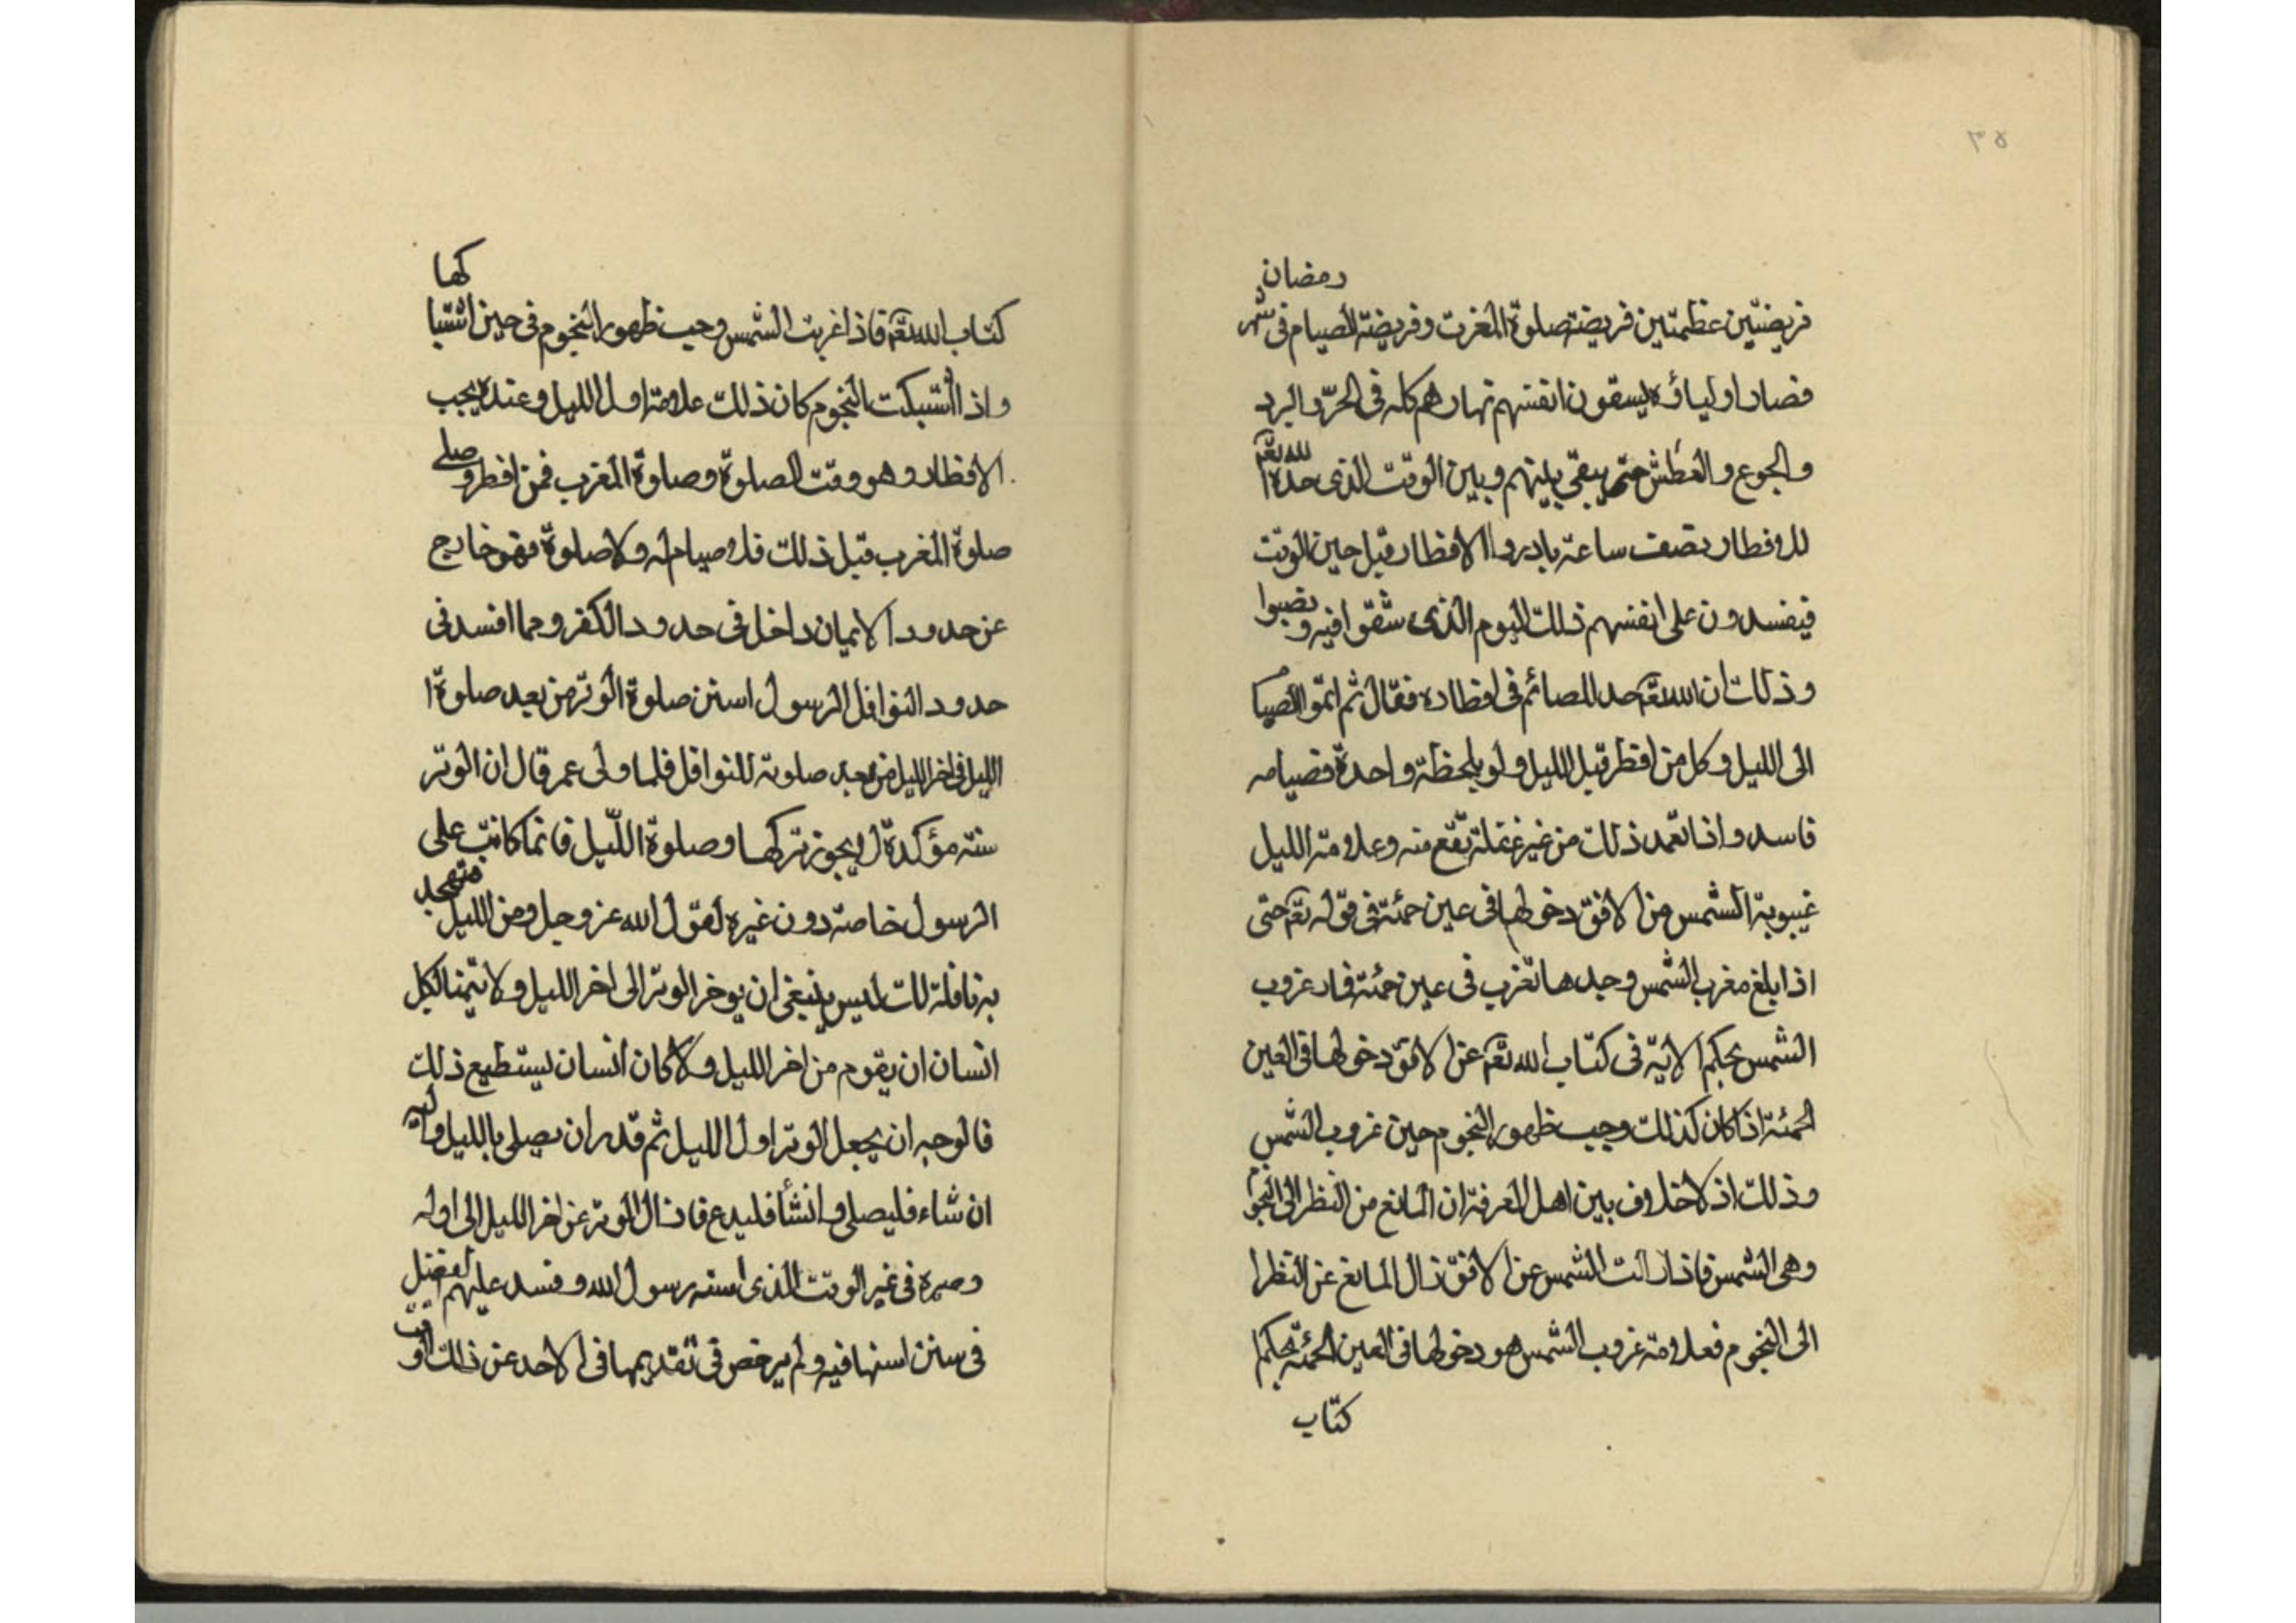 ٥٦
رمضان
فريضتين عظمتين فريضة صلوة المغرب وفريضة الصيام فى شهر
فصار اوليائه يسقون انفسهم نهارهم كله فى الحرّ والبرد
والجوع والعطش حتى يبقى بينهم وبين الوقت الذى حده الله تعم
للافطار نصف ساعة بادروا الافطار قبل حين الوقت
فيفسدون على انفسهم ذلك اليوم الذى شقّوا فيه ونصبوا
وذلك ان الله تعم حد للصائم فى افطاره فقال ثم اتمّوا الصيا
الى الليل وكل من افطر قبل الليل ولو بلحظة واحدة فصيامه
فاسد واذا تعمد ذلك من غير غفلة تقع منه وعلامة الليل
غيبوبة الشمس من الافق دخولها فى عين حمئة فى قوله تعم حتى
اذا بلغ مغرب الشمس وجدها تغرب فى عين حمئة فاد غروب
الشمس بحكم الاية فى كتاب الله تعم عن الافق دخولها فى العين
الحمئة اذا كان كذلك وجب ظهور النجوم حين غروب الشمس
وذلك اذ لا خلاف بين اهل المعرفة ان المانع من النظر الى النجوم
وهى الشمس فاذا زالت الشمس عن الافق زال المانع عن النظر ا
الى النجوم فعلامة غروب الشمس هو دخولها فى العين الحمئة بحكم
كتاب
كها
كتاب الله تعم فاذا غربت الشمس وجب ظهور النجوم فى حين اشتبا
واذا اشتبكت النجوم كان ذلك علامة اول الليل وعنده يجب
الافطار وهو وقت الصلوة وصلوة المغرب فمن افطر وصلى
صلوة المغرب قبل ذلك فلا صيام له ولا صلوة فهو خارج
عن حدود الايمان داخل فى حدود الكفر ومما افسد فى
حدود النوافل الرسول استن صلوة الوتر من بعد صلوة ا
الليل فى اخر الليل من بعد صلوته للنوافل فلما ولى عمر قال ان الوتر
سنة مؤكدة لا يجوز تركها وصلوة اللّيل فانما كانت على
الرسول خاصة دون غيره لقول الله عز وجل ومن الليل فتهجد
به نافلة لك ليس ينبغى ان يوخر الوتر الى اخر الليل ولا يتمنا لكل
انسان ان يقوم من اخر الليل ولا كان انسان يستطيع ذلك
فالوجه ان يجعل الوتر اول الليل ثم قدر ان يصلى بالليل
ان شاء فليصلى وانشأ فليدع فازال الوتر عن اخر الليل الى اوله
وصيره فى غير الوقت الذى استنه رسول الله وفسد عليهم لفضل
فى سنن استنها فيه ولم يرخص فى تقديمها فى لاحد عن ذلك الوقت